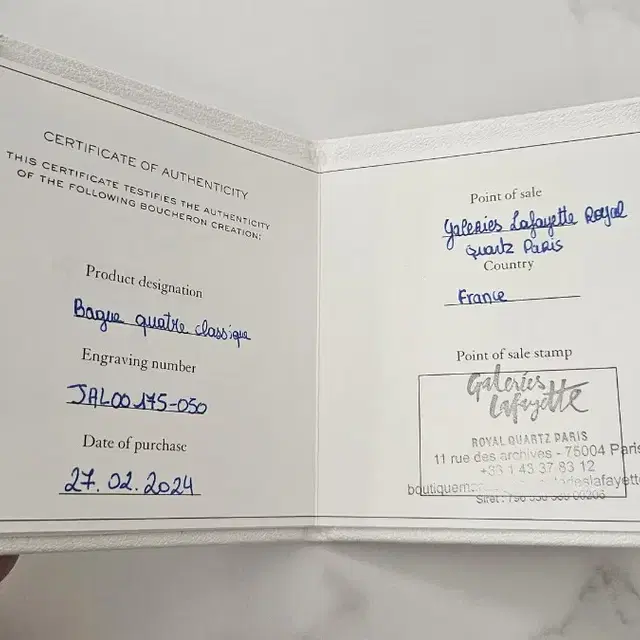 CERTIFICATE OF AUTHENTICITY
THIS CERTIFICATE TESTIFIES THE AUTHENTICITY
OF THE FOLLOWING BOUCHERON CREATION:
Product designation
Bague quatre classique
Engraving number
JAL00175-050
Date of purchase
27.02.2024
Point of sale
Galeries Lafayette Royal
quartz Paris
Country
France
Point of sale stamp
Galeries
Lafayette
ROYAL QUARTZ PARIS
11 rue des archives - 75004 Paris
+33 1 43 37 83 12
Siret :